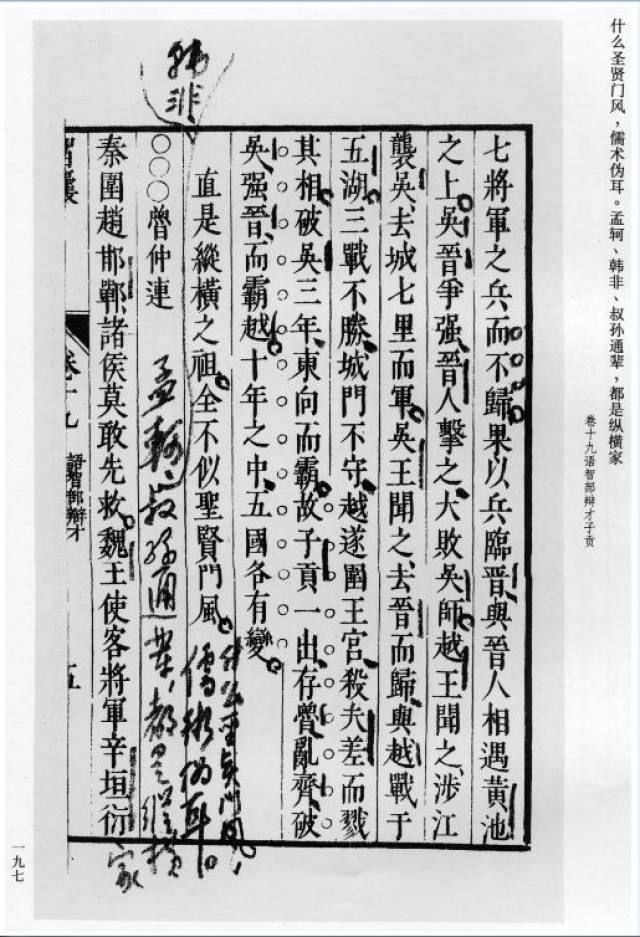 什么圣贤门风，儒术伪耳。孟轲、韩非、叔孙通辈，都是纵横家
卷十九语智部辩才子贡
七將軍之兵而不歸果以兵臨晋與晉人相遇黃池
之上吳晉爭强晋人擊之大敗吳師越王聞之涉江
襲吳去城七里而軍吳王聞之去晋而歸與越戰于
五湖三戰不勝城門不守越遂圍王宮殺夫差而戮
其相破吳三年東向而霸故子貢一出存魯亂齊破
吳强晉而霸越十年之中五國各有變
直是縱橫之祖全不似聖賢門風
什么圣贤门风，
儒术伪耳。
孟軻
韩非
叔孙通辈，都是纵横家
〇〇〇魯仲連
秦圍趙邯鄲諸侯莫敢先救魏王使客將軍辛垣衍
智囊
卷十九
語智部辯才
五
一九七